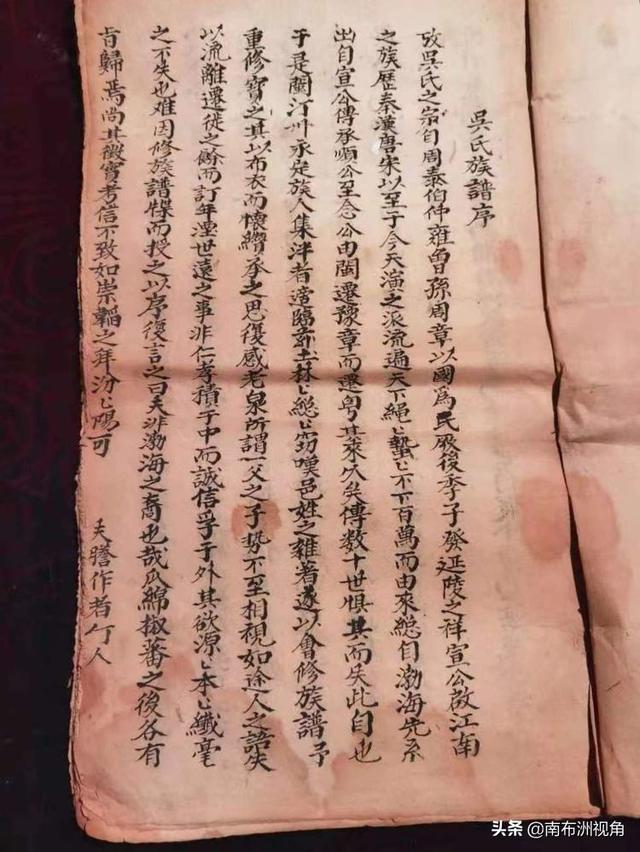 吳氏族譜序
攷吳氏之宗自周泰伯仲雍曾孫周章以國為氏厥後季子發延陵之祥宣公啟江南
之族歷秦漢唐宋以至于今天演之派流遍天下繩〻蟄〻不下百萬而由來總自渤海先系
出自宣公傳承順公至念公由閩遷豫章而遷粵其來久矣傳数十世惧其而失此自也
于是閩汀州永定族人集泮者適臨前士林〻總〻竊嘆邑姓之雜著遂以會修族譜予
重修寶之其以布衣而懷纘承之思復感老泉所謂一父之子勢不至相視如途人之語失
以流離遷徙之餘而訂年湮世遠之事非仁孝積于中而誠信孚于外其欲源〻本〻纖毫
之不失也难因修族譜牒而授之以序復言之曰夫非渤海之裔也哉瓜綿椒蕃之後各有
肯歸焉尚其徵實考信不致如崇韜之拜汾〻陽可
夫謄作者仃人
头条 @南布洲视角